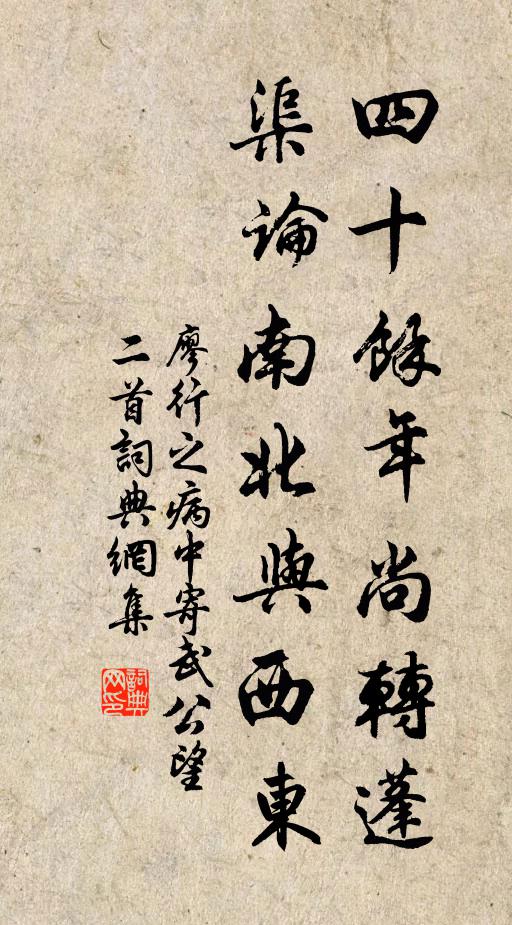 四十餘年尚轉蓬
渠論南北與西東
廖行之病中寄武公望
二首詞典網集
詞典網印